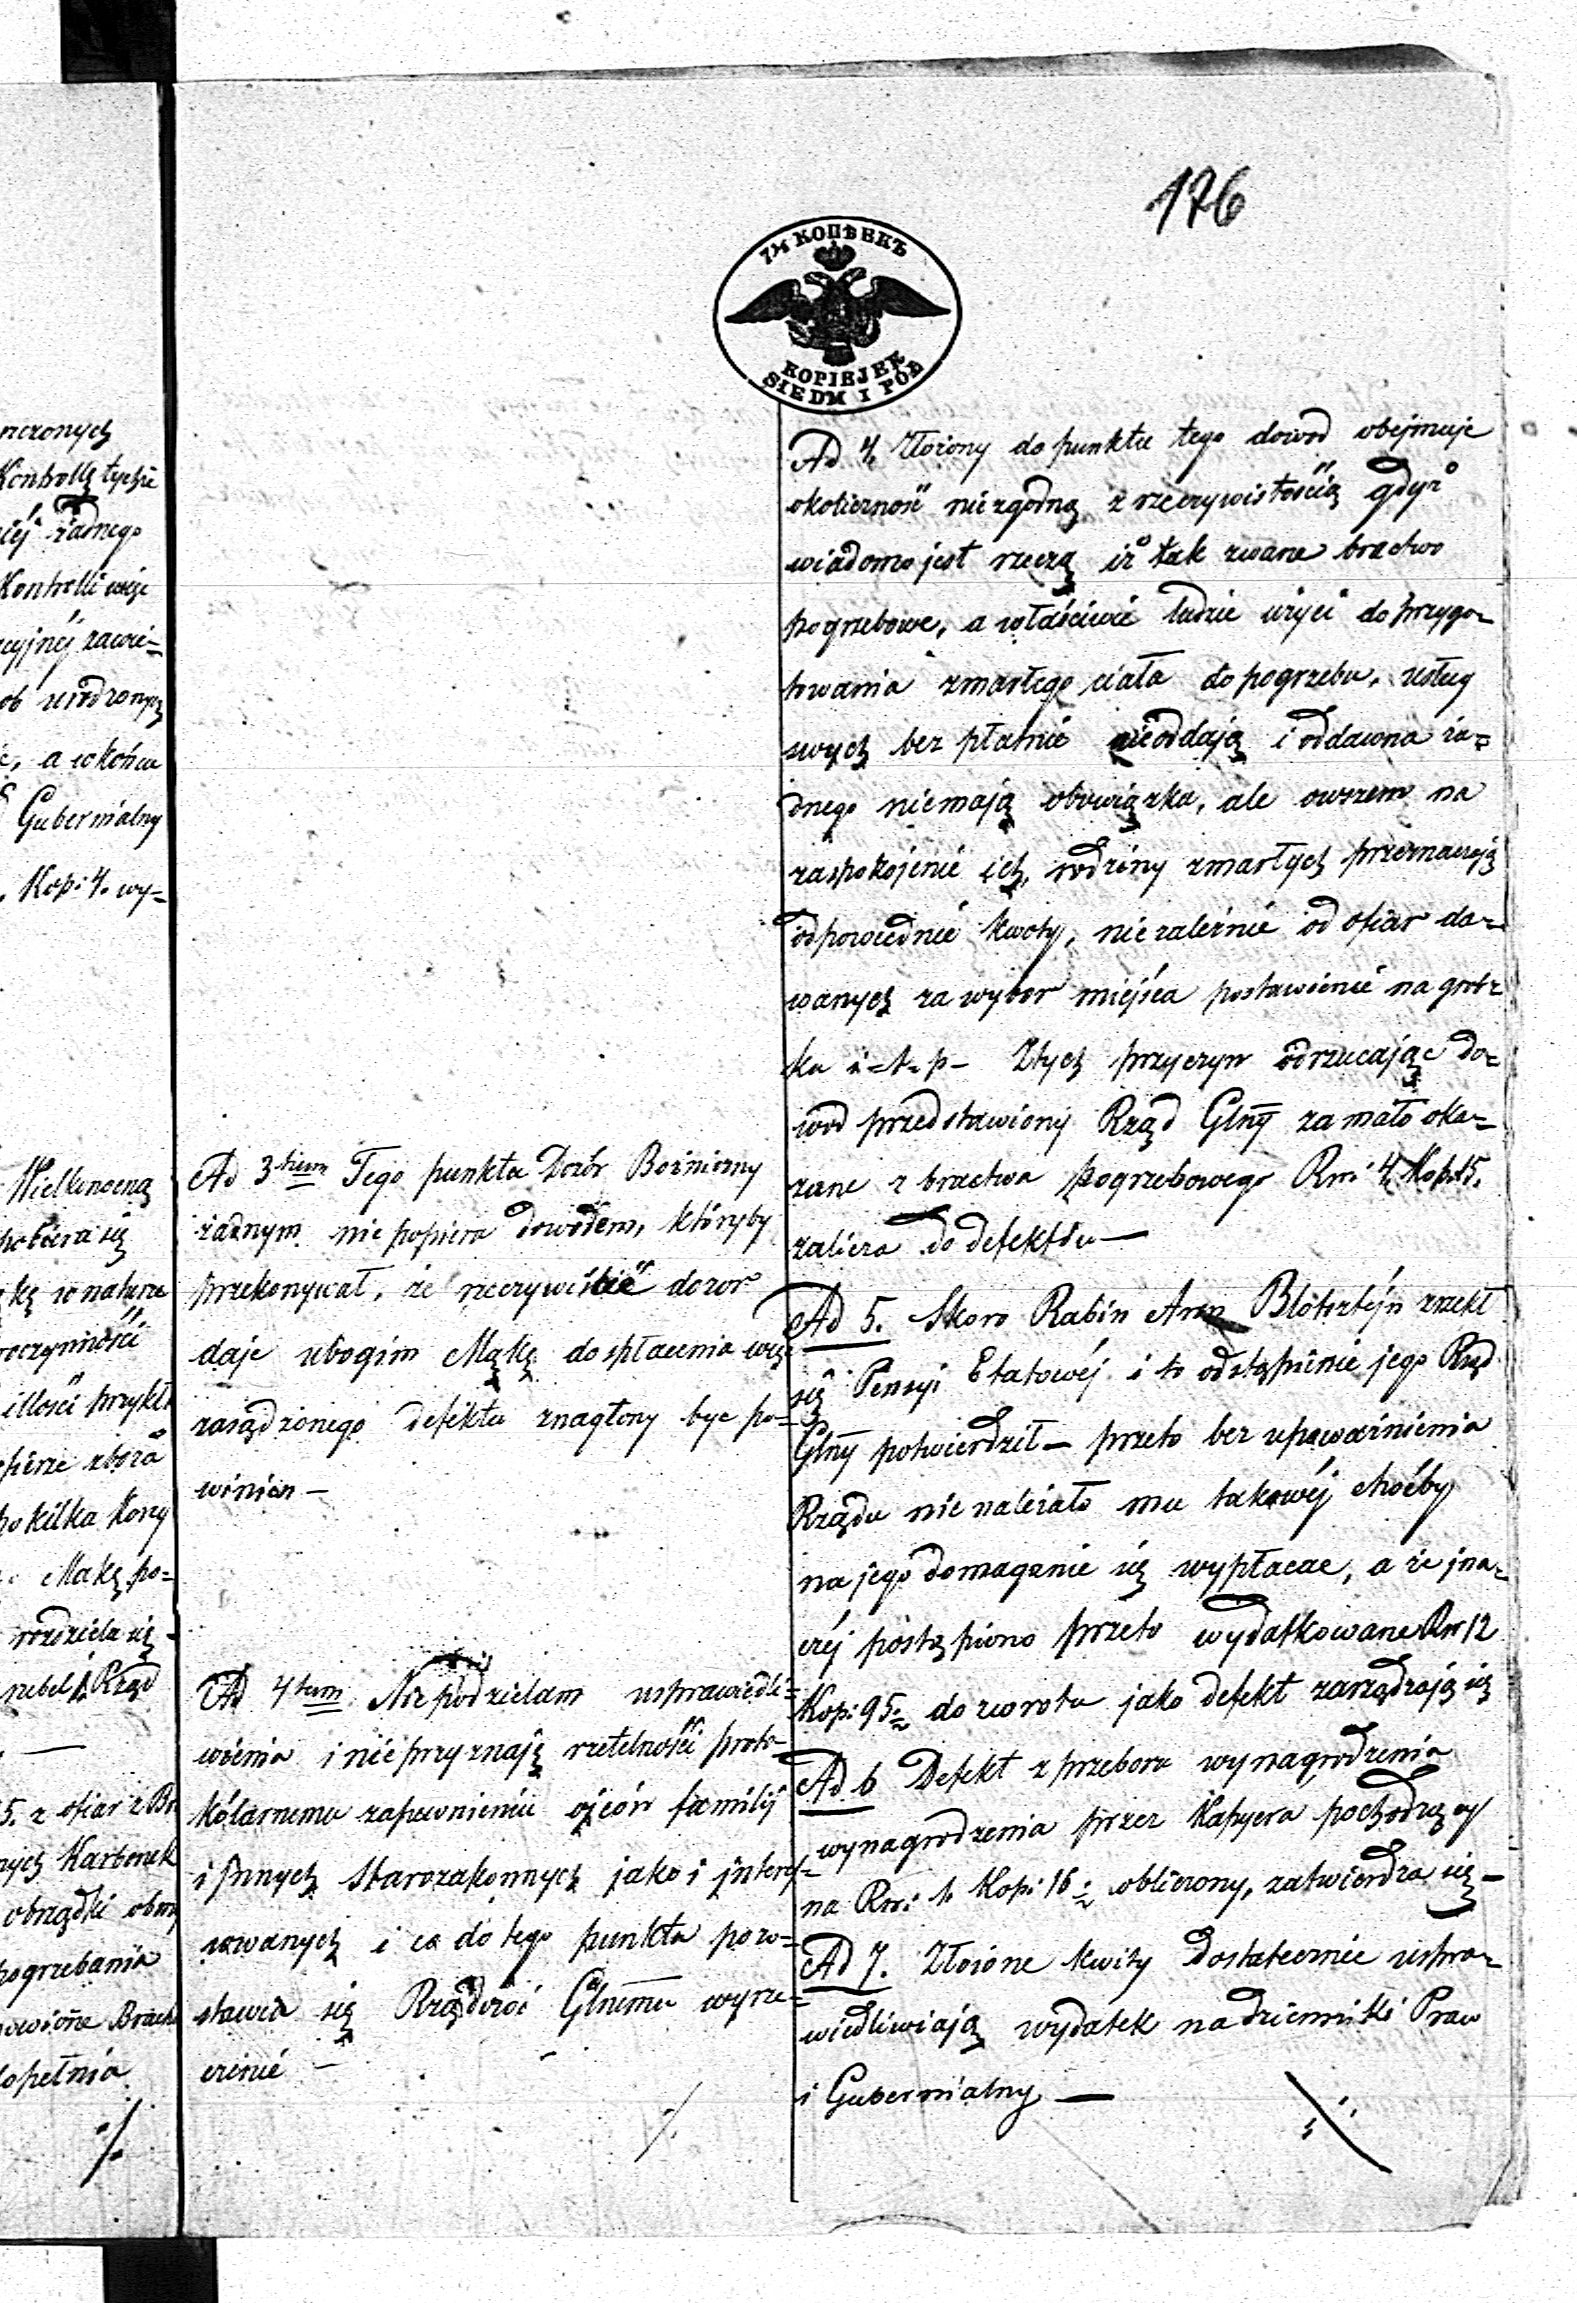 176
7½ КОПѢЕКЪ
KOPIEJEK
SIEDM I PÓŁ
nczonych
Kontrollę tychże
żadnego
Kontrolli
cyjnéj zawie=
ob urodzonych
, a w końcu
Gubernialny
Kop: 4. wy=
Wielkanocną
pobiera się
kę w naturze
oczynności
illości przykł
zbora
po kilka Kony
Mąkę po=
rozdziela się
Rząd
5. z ofiar z Br
nych Karbonek
obrządki
pogrzebania
dopełnia
./.
Ad 3tium Tego punktu Dozór Bożniczny
żadnym nie popiera dowodem, któryby
przekonywał, że rzeczywiście dozor
daje ubogim Mąkę do spłacenia więc
zasądzonego defektu znaglony byc po=
winien —
Ad 4tum Nie podzielam usprawiedli=
wienia i nie przyznaję rzetelności proto=
kólarnemu zapewnieniu ojców familij
i Jnnych Starozakonnych jako interes=
sowanych i co do tego punktu pozo=
stawia się Rządowi Glnemu wyrze=
czenie —
./.
Ad 4. Złożony do punktu tego dowod obejmuje
okoliczność niezgodną z rzeczywistością gdyż
wiadomo jest rzeczą iż tak zwane bractwo
pogrzebowe, a właściwie ludzie użyci do przygo=
towania zmarłego ciała do pogrzebu, usług
swych bez płatnie nieoddają i oddawna ża=
dnego niemają obowiązku, ale owszem na
zaspokojenie ich, rodziny zmarłych przeznaczają
odpowiednie kwoty, niezależnie od ofiar da=
wanych za wybor miejsca postawienie nagrob=
ka i=t=p= Ztych przyczyn odrzucając do=
wod przedstawiony Rząd Glny za mało oka=
zane z bractwa pogrzebowego Rsr: 4 Kop: 15.
zalicza do defektów —
Ad 5. Skoro Rabin Aron Blötsztéjn zrzekł
się Pensyi Etatowéj i to odstąpienie jego Rząd
Glny potwierdził — przeto bez upoważnienia
Rządu nie należało mu takowéj choćby
na jego domaganie się wypłacac, a że jna=
czéj postąpiono przeto wydatkowane Rsr 12
Kop: 95. do zwrotu jako defekt zarządzają się
Ad 6 Defekt z przeboru wynagrodzenia
wynagrodzenia przez Kassyera pochodzący
na Rsr: 1. Kop: 16 obliczony, zatwierdza się —
Ad 7. Złożone kwity Dostatecznie uspra=
wiedliwiają wydatek na dzienniki Praw
i Gubernialny —